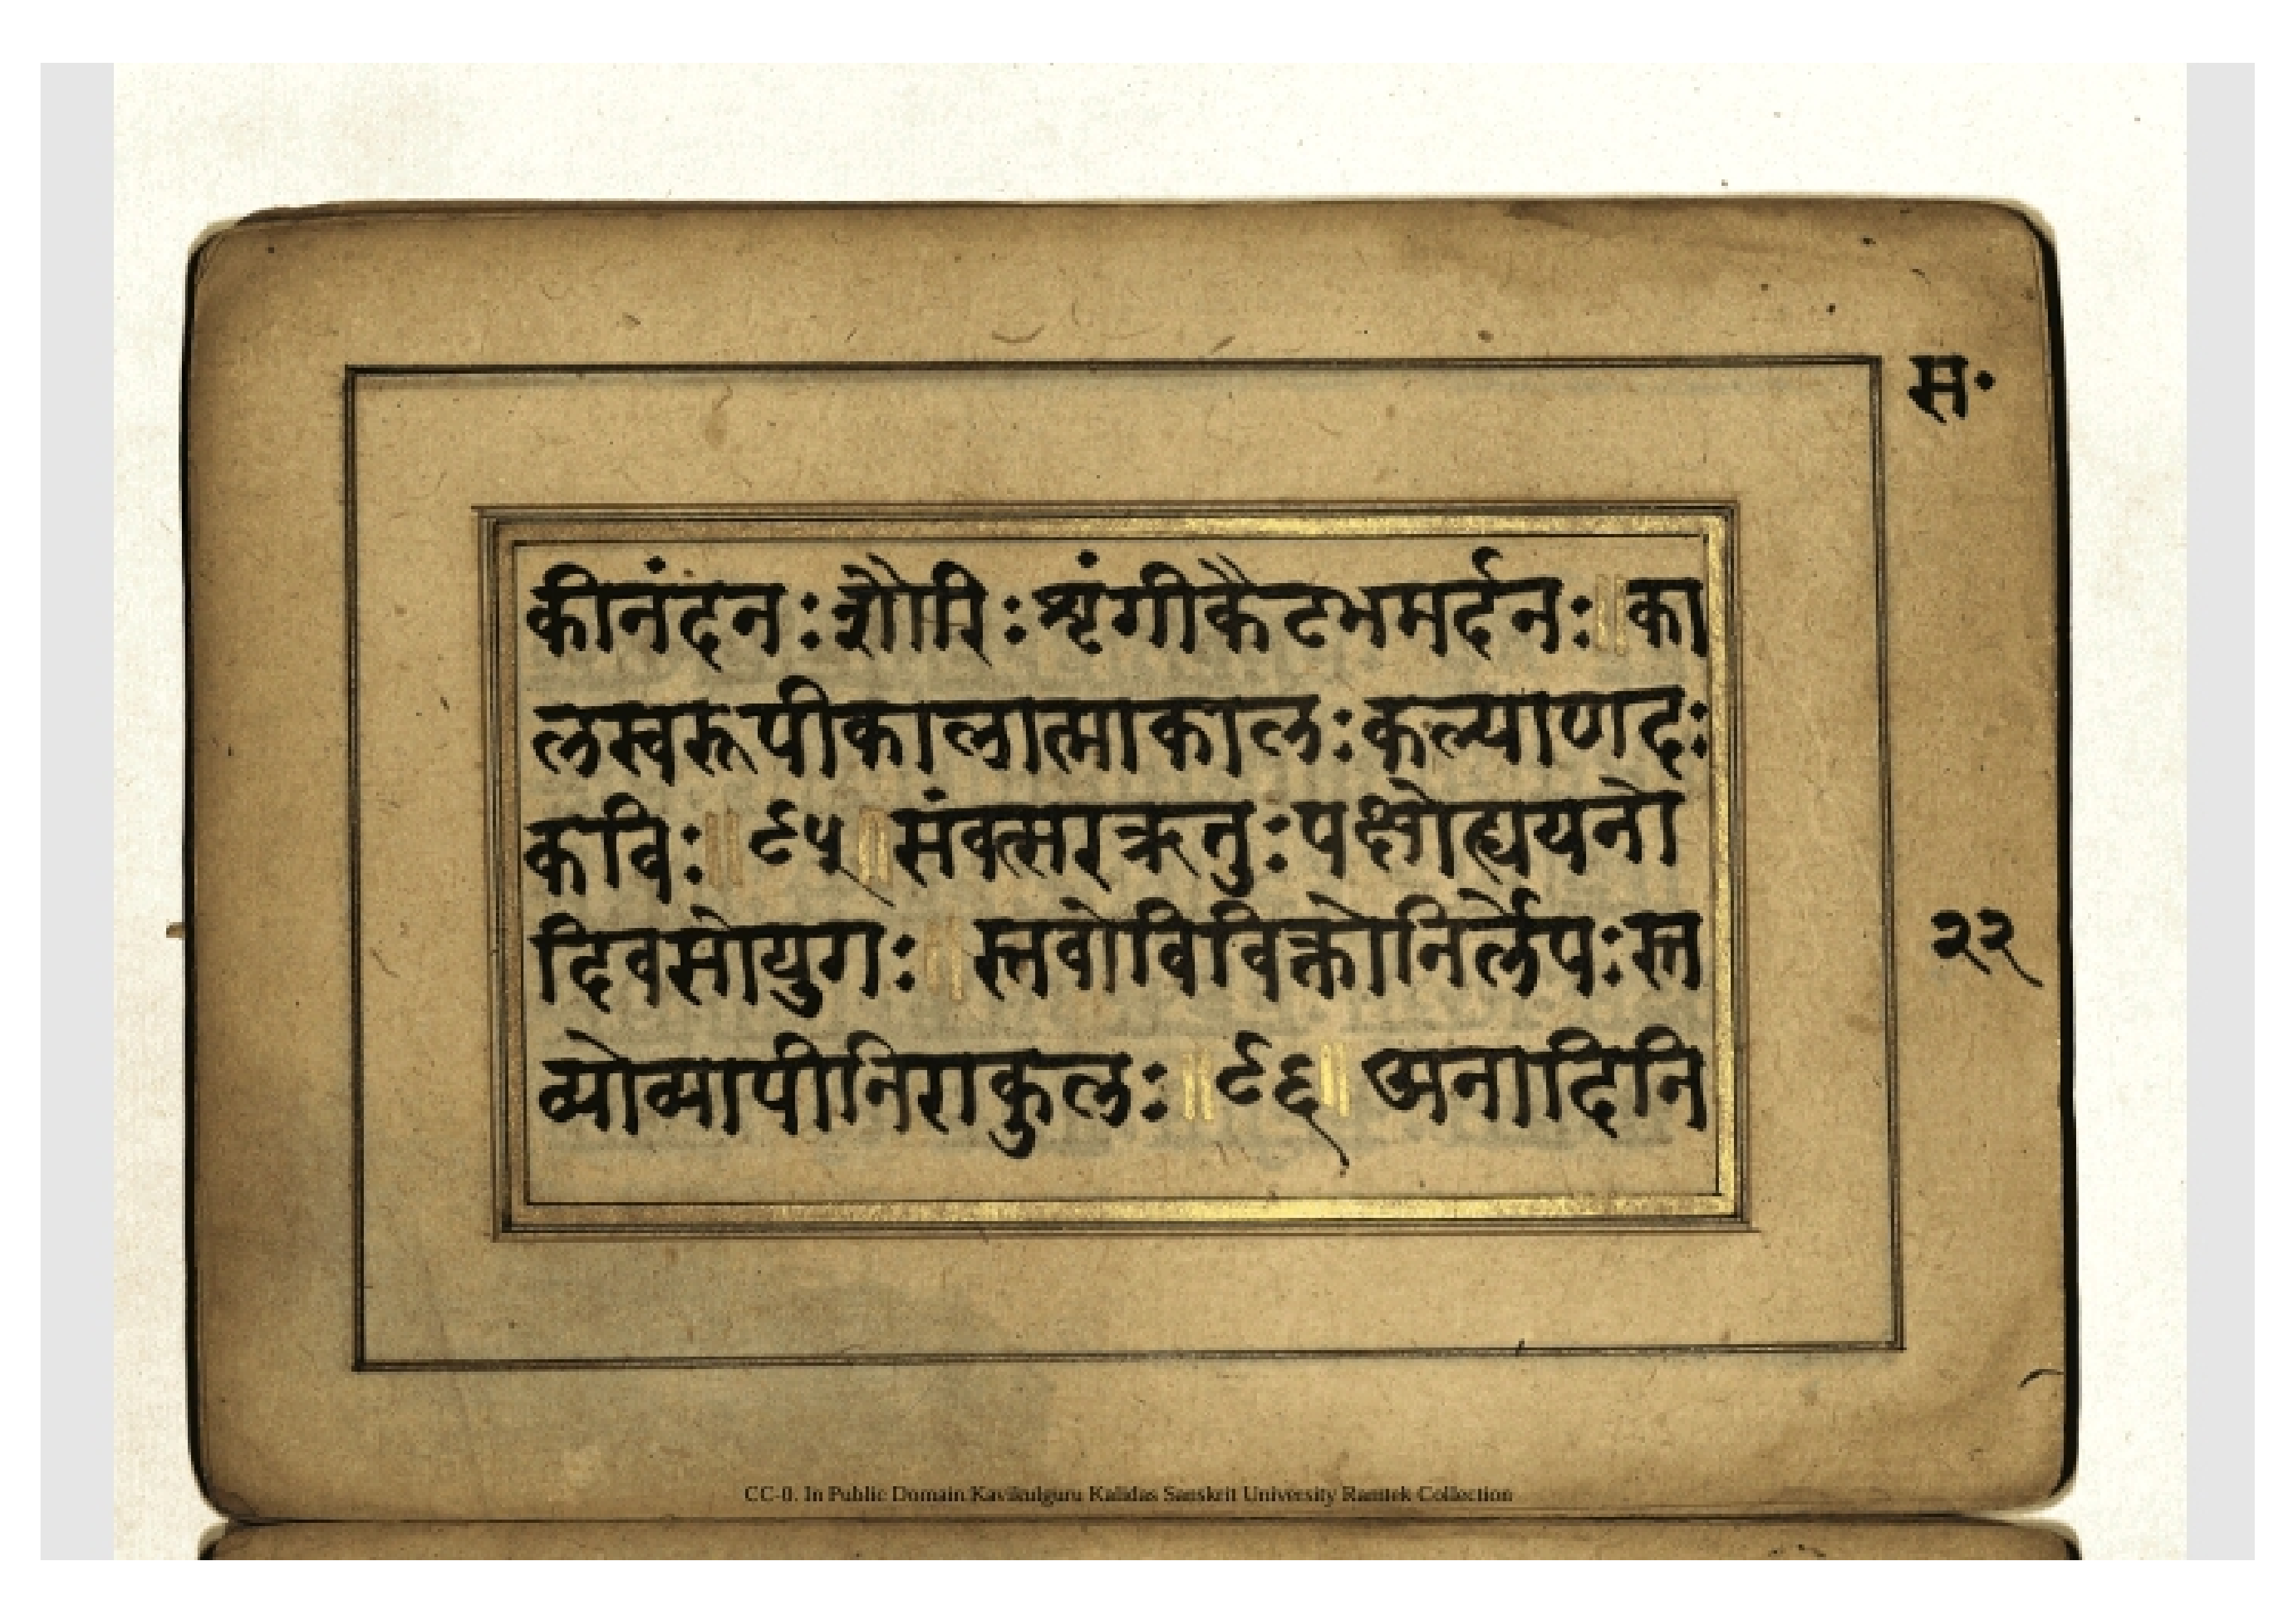 स॰
कीनंदन:शौरि:श्रृंगीकैटभमर्दन:॥का
लस्वरूपीकालात्माकाल:कल्याणद:
कवि:॥९५॥संवत्सरऋतु:पक्षोह्ययनो
दिवसोयुग:॥स्तवोविविक्तोनिर्लेप:स्त
व्योव्यापीनिराकुल:॥९६॥अनादिनि
२२
CC-0. In Public Domain Kavikulguru Kalidas Sanskrit University Ramtek Collection